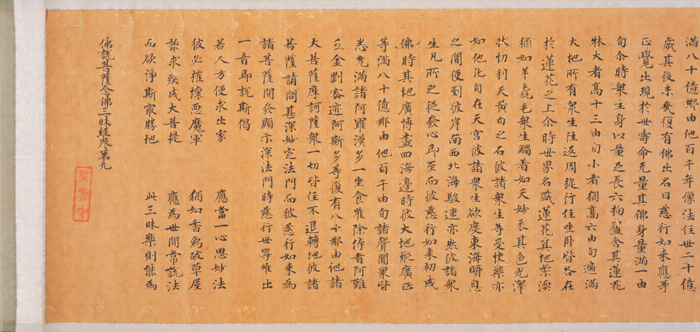 滿八十億那由他百千年像法住世二十億
歲其後未幾復有佛出名曰慈行如來應等
正覺出現於世壽命无量其佛身量滿一由
旬尒時衆生身以量長六拘盧舍其蓮花
殊大者高十三由旬小者猶高六由旬遍滿
大地所有衆生往返周旋行住坐卧皆在
於蓮花之上尒時世界名藏蓮花其地柔濡
猶如毳毛衆生觸着如天妙衣其色光澤
狀忉利天黄白之石彼諸衆生等受快樂亦
如他化自在天宮彼諸衆生欲度東海瞬息
之間便到彼岸南西北海駛速亦然彼諸衆
生凡所之從發心即至而彼慈行如來初成
佛時其地廣博盡四海邊時彼大地縱廣正
等滿八十億那由他百千由旬諸聲聞衆皆
悉充滿諸阿羅漢多一坐食唯除侍者阿難
及金剛密迹阿斯多等復有八十那由他諸
大菩薩摩訶薩衆一切皆住不退轉地彼諸
菩薩請問甚深妙定法門而彼慈行如來為
諸菩薩開發顯示深法門時慈行世尊唯出
一音即說斯偈
若人方便求出家 應當一心思妙法
彼必摧壞惡魔軍 猶如香象破草屋
誰求疾成大菩提 應為世間常說法
而欲淨斯最勝地 此三昧樂則能為
佛說菩薩念佛三昧經卷第九